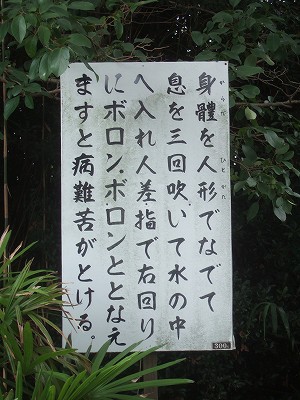 身體を人形でなでて
からだ ひとがた
息を三回吹いて水の中
へ入れ人差指で右回り
にボロン、ボロンととなえ
ますと病難苦がとける。
300